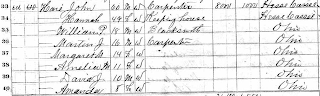 33 Hans, John 50 M W Carpenter 800 Hesse Cassel
34 Hannah 49 F W Keeping house Hesse Cassel
35 William P. 18 M W Blacksmith Ohio
36 Martin J. 16 M W Carpenter Ohio
37 Margaret M. 14 F W Ohio
38 Amelia M. 11 F W Ohio
39 David J. 10 M W Ohio
40 Amanda 8 F W Ohio